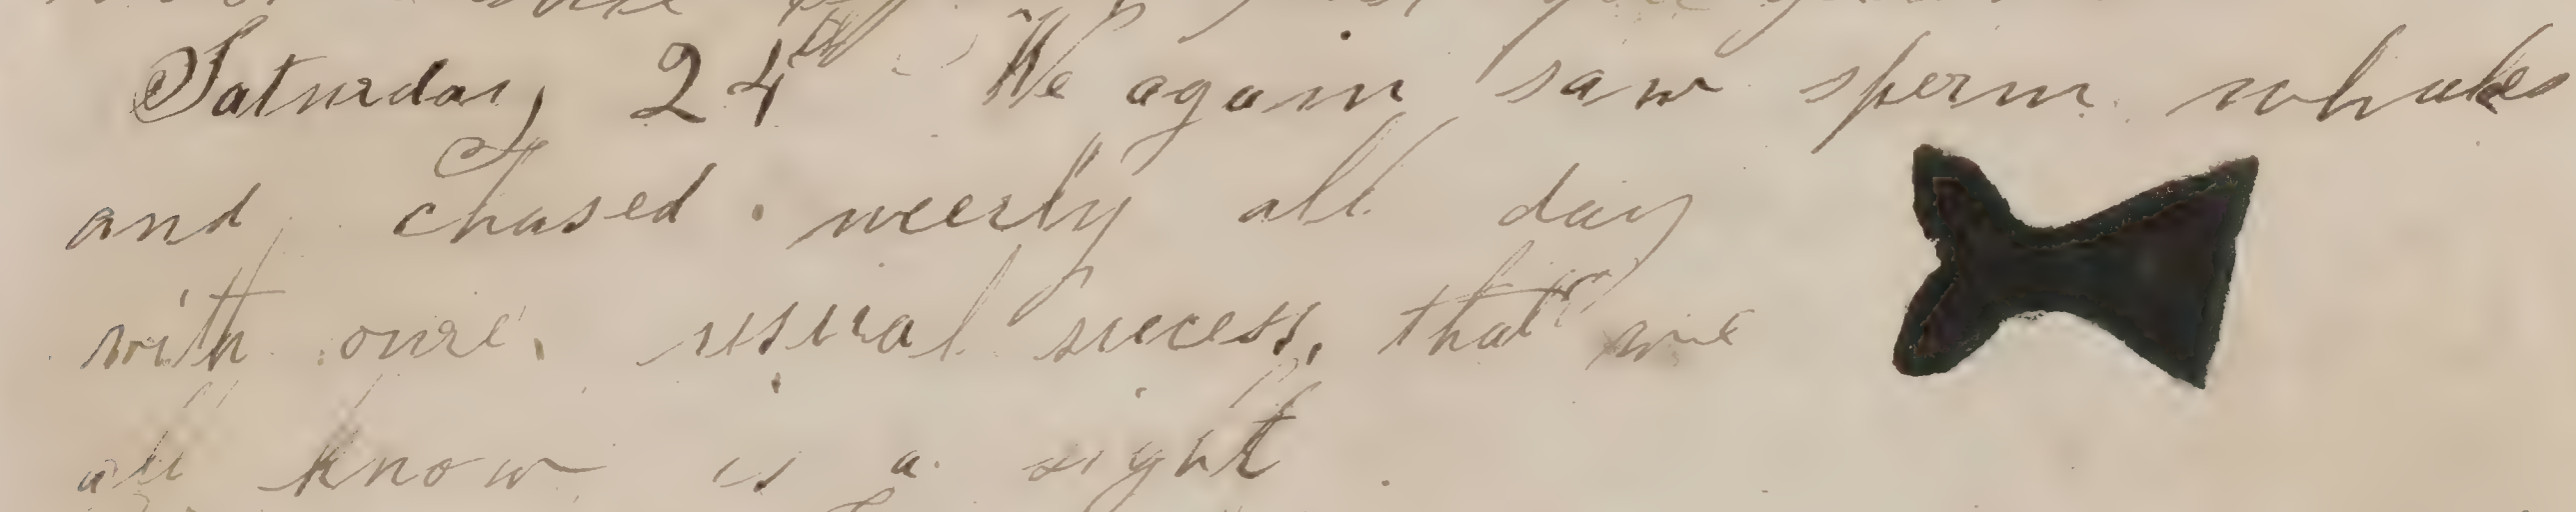 Saturday, 24th We again saw sperm whales
and chased neerly all day
with oure usual sucess, that we
all know is a sight